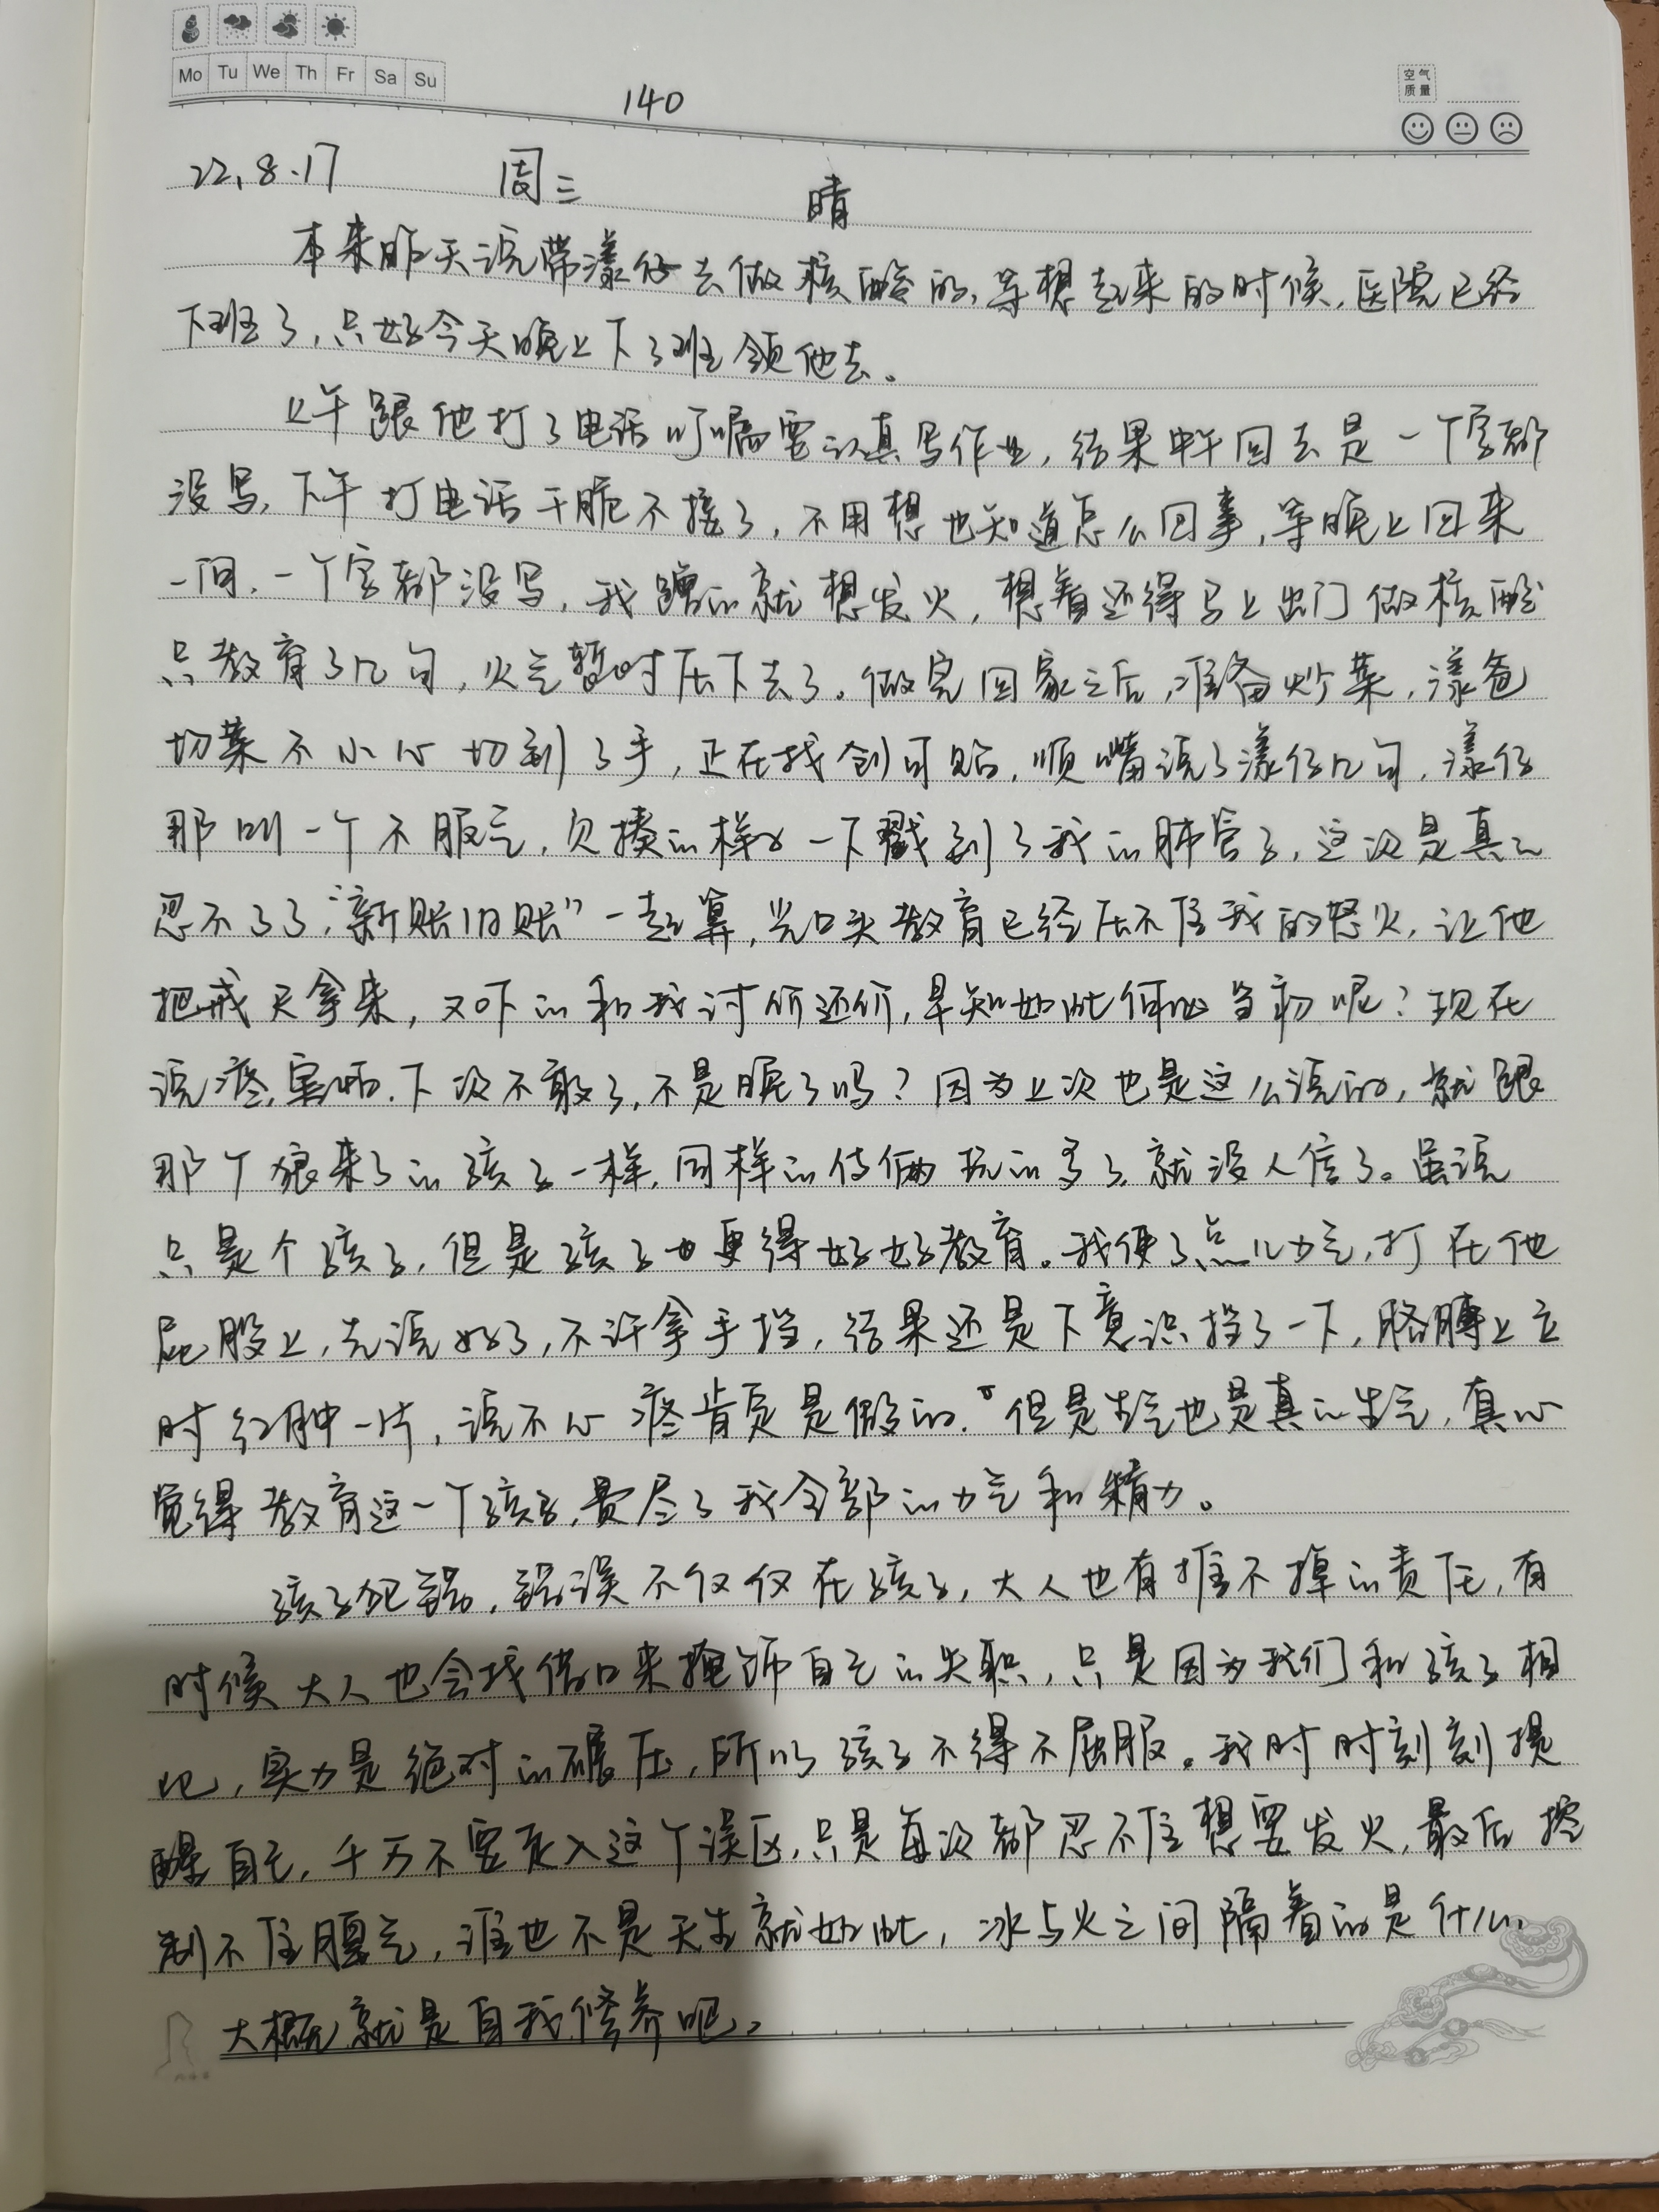 Mo Tu We Th Fr Sa Su
空气
质量
140
22.8.17 周三 晴
本来昨天说带漾仔去做核酸的,等想起来的时候,医院已经
下班了,只好今天晚上下了班领他去。
上午跟他打了电话叮嘱要认真写作业,结果中午回去是一个字都
没写,下午打电话干脆不接了,不用想也知道怎么回事,等晚上回来
一问,一个字都没写,我蹭的就想发火,想着还得马上出门做核酸
只教育了几句,火气暂时压下去了。做完回家之后,准备炒菜,漾爸
切菜不小心切到了手,正在找创可贴,顺嘴说了漾仔几句,漾仔
那叫一个不服气,欠揍的样子一下戳到了我的肺管了,这次是真的
忍不了了,“新账旧账”一起算,光口头教育已经压不住我的怒火,让他
把戒尺拿来,又吓的和我讨价还价,早知如此何必当初呢?现在
说疼,害怕,下次不敢了,不是晚了吗?因为上次也是这么说的,就跟
那个狼来了的孩子一样,同样的伎俩玩的多了,就没人信了。虽说
只是个孩子,但是孩子也更得好好教育。我使了点儿力气,打在他
屁股上,先说好了,不许拿手挡,结果还是下意识挡了一下,胳膊上立
时红肿一片,说不心疼肯定是假的。但是生气也是真的生气,真心
觉得教育这一个孩子,费尽了我全部的力气和精力。
孩子犯错,错误不仅仅在孩子,大人也有推不掉的责任,有
时候大人也会找借口来掩饰自己的失职,只是因为我们和孩子相
比,实力是绝对的碾压,所以孩子不得不屈服。我时时刻刻提
醒自己,千万不要走入这个误区,只是每次都忍不住想要发火,最后控
制不住脾气,谁也不是天生就如此,冰与火之间隔着的是什么,
大概就是自我修养吧。